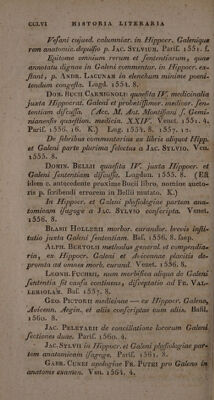 CCLVI HISTORIA LITERARIA
Vesani cujusd. calumniar. in Hippocr. Galenique
rem anatomic. depulsio p. JAC. SYLVIUM. Paris. 1551. f.
Epitome omnium rerum et sententiarum, quae
annotatu dignae in Galeni commentar. in Hippocr. ex-
stant, p. ANDR. LACUNAM in elenchum minime poeni-
tendum congesta. Lugd. 1554. 8.
DON. RUCH CARNIGNOLE quaesita IV. medicinalia
juxta Hippocrat. Galeni et probatissimor. medicor. sen-
tentiam discussa. (Acc. M. Ant. Montisiani f. Gemi-
nianensis quaestion. medicin. XXIV. Venet. 1551. 4.
Paris. 1556. 16. K.) Lug. 1551. 8. 1557. 12.
De febribus commentarius ex libris aliquot Hipp.
et Galeni parte plurima selectus a JAC. SYLVIO. Ven.
1555. 8.
DOMIN. BELLII quaesita IV. juxta Hippocr. et
Galeni sententiam discussa. Lugdun. 1555. 8. (Est
idem c. antecedente proxime Bucii libro, nomine aucto-
ris p. scribendi errorem in Bellii mutato. K.)
In Hippocr. et Galeni physiologiae partem ana-
tomicam isagoge a JAC. SYLVIO conscripta. Venet.
1556. 8.
BLASII HOLLERII morbor. curandor. brevis insti-
tutio juxta Galeni sententiam. Bas. 1556. 8. saep.
ALPH. BERTOLII methodus general. et compendia-
ria, ex Hippocr. Galeni et Avicennae placitis de-
promta ad omnes morb. curand. Venet. 1556. 8.
LEONH. FUCHSII, num morbifica aliqua de Galeni
sententia sit causa continens, disceptatio ad FR. VAL-
LERIOLAM. Bas. 1557. 8.
GEO. PICTORII medicinae — ex Hippocr. Galeno,
Avicenn. Aegin. et aliis conscriptae cum aliis. Basil.
1560. 8.
JAC. PELETARII de conciliatione locorum Galeni
sectiones duae. Paris. 1560. 4.
JAC. SYLVII in Hippocr. et Galeni physiologiae par-
tem anatomicam isagoge. Paris. 1561. 8.
GABR. CUNEI apologiae FR. PUTEI pro Galeno in
anatome examen. Ven. 1564. 4.